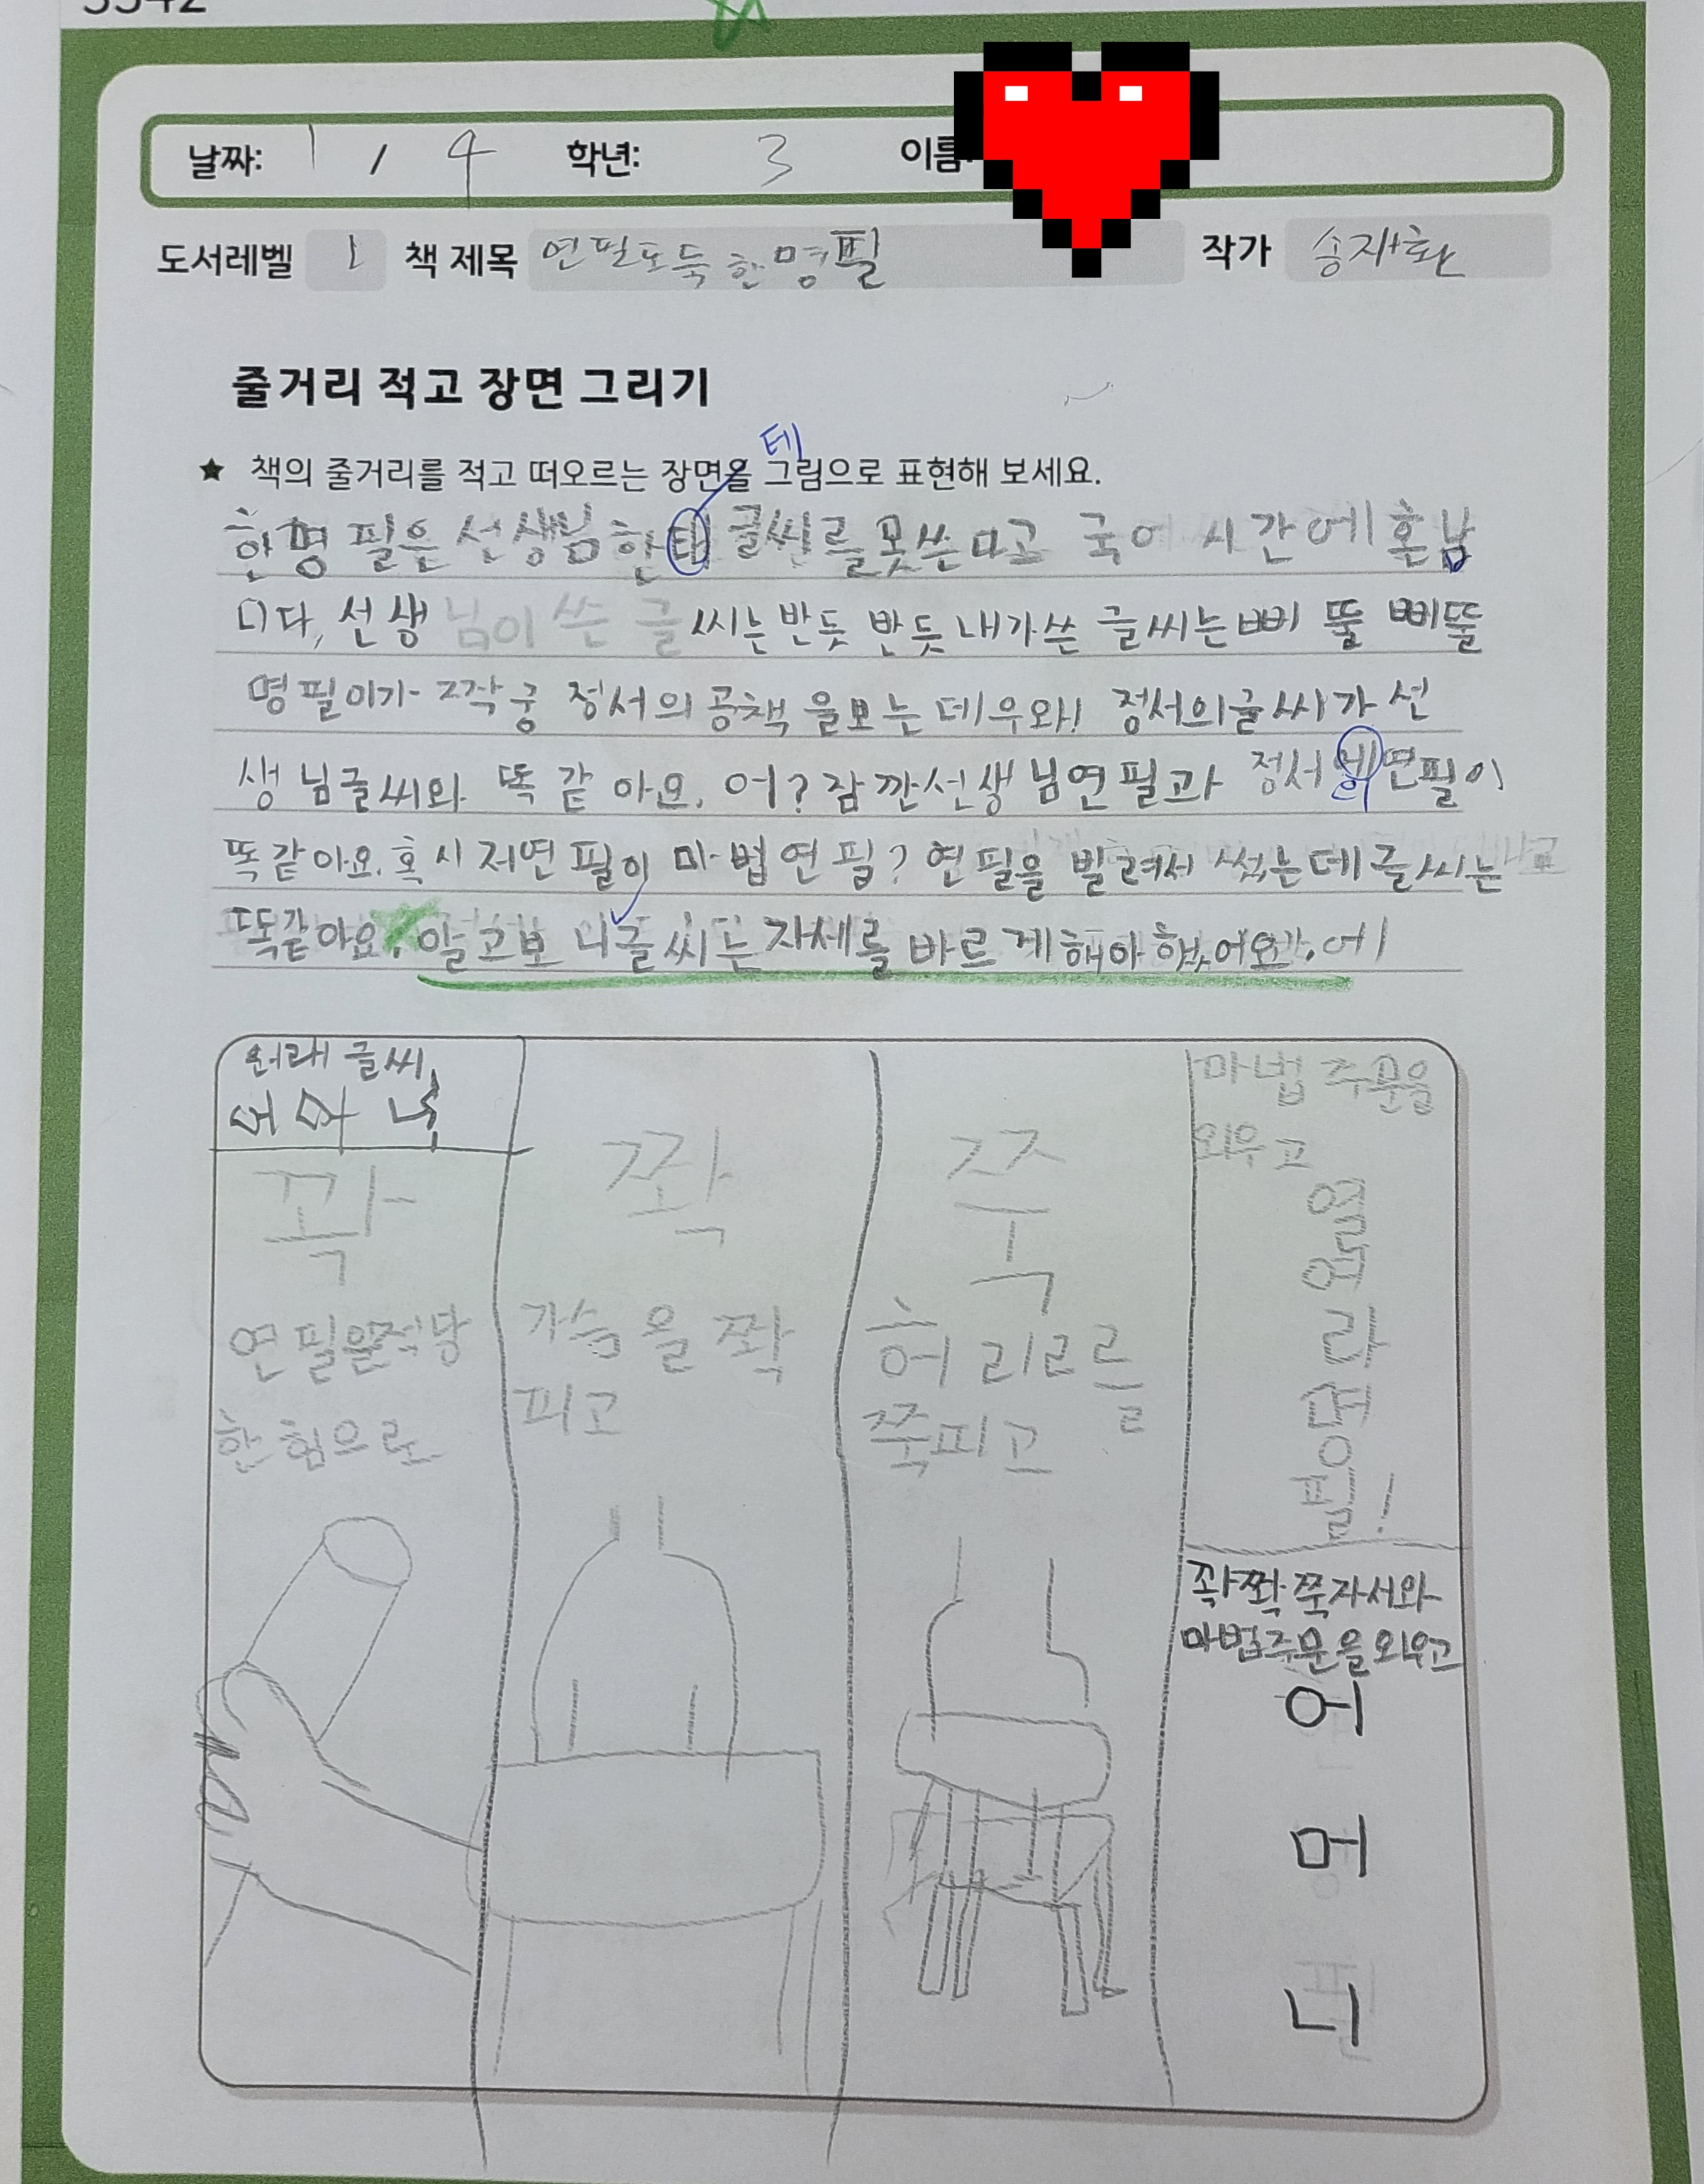 날짜: 1 / 4 학년: 3 이름:
도서레벨 1 책 제목 연필도둑 한명필 작가 송재환
줄거리 적고 장면 그리기
테
★ 책의 줄거리를 적고 떠오르는 장면을 그림으로 표현해 보세요.
한명필은 선생님한태 글씨를 못쓴다고 국어 시간에 혼납
니다, 선생님이 쓴 글씨는 반듯 반듯 내가쓴 글씨는 삐뚤 삐뚤
명필이가 짝궁 정서의 공책을보는데 우와! 정서의글씨가 선
생님글씨와 똑같아요. 어? 잠깐 선생님연필과 정서에연필이
의
똑같아요. 혹시 저연필이 마법연필? 연필을 빌려서 썼는데 글씨는
똑같아요. 알고보니글씨는 자세를 바르게해야 했어요.
원래 글씨
어 머 니
꽉
연필을적당
한 힘으로
쫙
가슴을 쫙
피고
쭉
허리를
쭉피고
마법 주문을
외우고
얍
리
명
필!
쭉자서와
마법주문을외우고
어
머
니